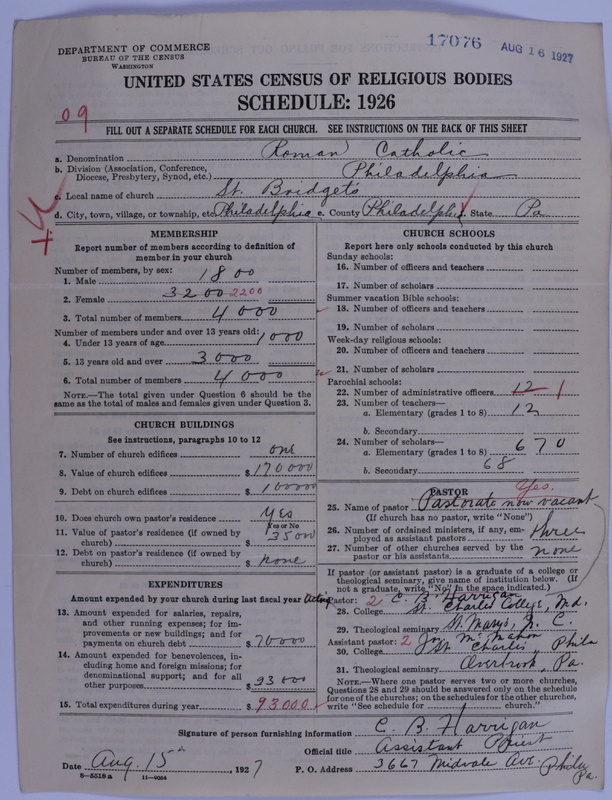 DEPARTMENT OF COMMERCE
BUREAU OF THE CENSUS
WASHINGTON
17076 AUG 16 1927
UNITED STATES CENSUS OF RELIGIOUS BODIES
SCHEDULE: 1926
09
FILL OUT A SEPARATE SCHEDULE FOR EACH CHURCH. SEE INSTRUCTIONS ON THE BACK OF THIS SHEET
a. Denomination Roman Catholic
b. Division (Association, Conference, Diocese, Presbytery, Synod, etc.) Philadelphia
c. Local name of church St. Bridget's
d. City, town, village, or township, etc. Philadelphia e. County Philadelphia State Pa
MEMBERSHIP
Report number of members according to definition of member in your church
Number of members, by sex:
1. Male 1800
2. Female 3200 2200
3. Total number of members 4000
Number of members under and over 13 years old:
4. Under 13 years of age 1000
5. 13 years old and over 3000
6. Total number of members 4000
NOTE.—The total given under Question 6 should be the same as the total of males and females given under Question 3.
CHURCH BUILDINGS
See instructions, paragraphs 10 to 12
7. Number of church edifices one
8. Value of church edifices $ 170000
9. Debt on church edifices $ 100000
10. Does church own pastor's residence yes
Yes or No
11. Value of pastor's residence (if owned by church) $ 35000
12. Debt on pastor's residence (if owned by church) $ none
EXPENDITURES
Amount expended by your church during last fiscal year
13. Amount expended for salaries, repairs, and other running expenses; for improvements or new buildings; and for payments on church debt $ 70000
14. Amount expended for benevolences, including home and foreign missions; for denominational support; and for all other purposes $ 93000
15. Total expenditures during year $ 93000
CHURCH SCHOOLS
Report here only schools conducted by this church
Sunday schools:
16. Number of officers and teachers
17. Number of scholars
Summer vacation Bible schools:
18. Number of officers and teachers
19. Number of scholars
Week-day religious schools:
20. Number of officers and teachers
21. Number of scholars
Parochial schools:
22. Number of administrative officers 12 1
23. Number of teachers—
a. Elementary (grades 1 to 8) 12
b. Secondary
24. Number of scholars—
a. Elementary (grades 1 to 8) 670
b. Secondary 68
PASTOR Yes.
25. Name of pastor Pastorate now vacant
(If church has no pastor, write "None")
26. Number of ordained ministers, if any, employed as assistant pastors three
27. Number of other churches served by the pastor or his assistants none
If pastor (or assistant pastor) is a graduate of a college or theological seminary, give name of institution below. (If not a graduate, write "No" in the space indicated.)
Acting Pastor: 2 C. B. Harrigan
28. College St. Charles College, Md.
29. Theological seminary St. Marys, N. C.
Assistant pastor: 2 Jos. McMahon
30. College St Charles, Phila
31. Theological seminary Overbrook, Pa.
NOTE.—Where one pastor serves two or more churches, Questions 28 and 29 should be answered only on the schedule for one of the churches; on the schedules for the other churches, write "See schedule for church."
Signature of person furnishing information C. B. Harrigan
Official title Assistant Priest
Date Aug. 15th, 1927 P. O. Address 3667 Midvale Ave. Phila Pa.
8-5518a 11-9064